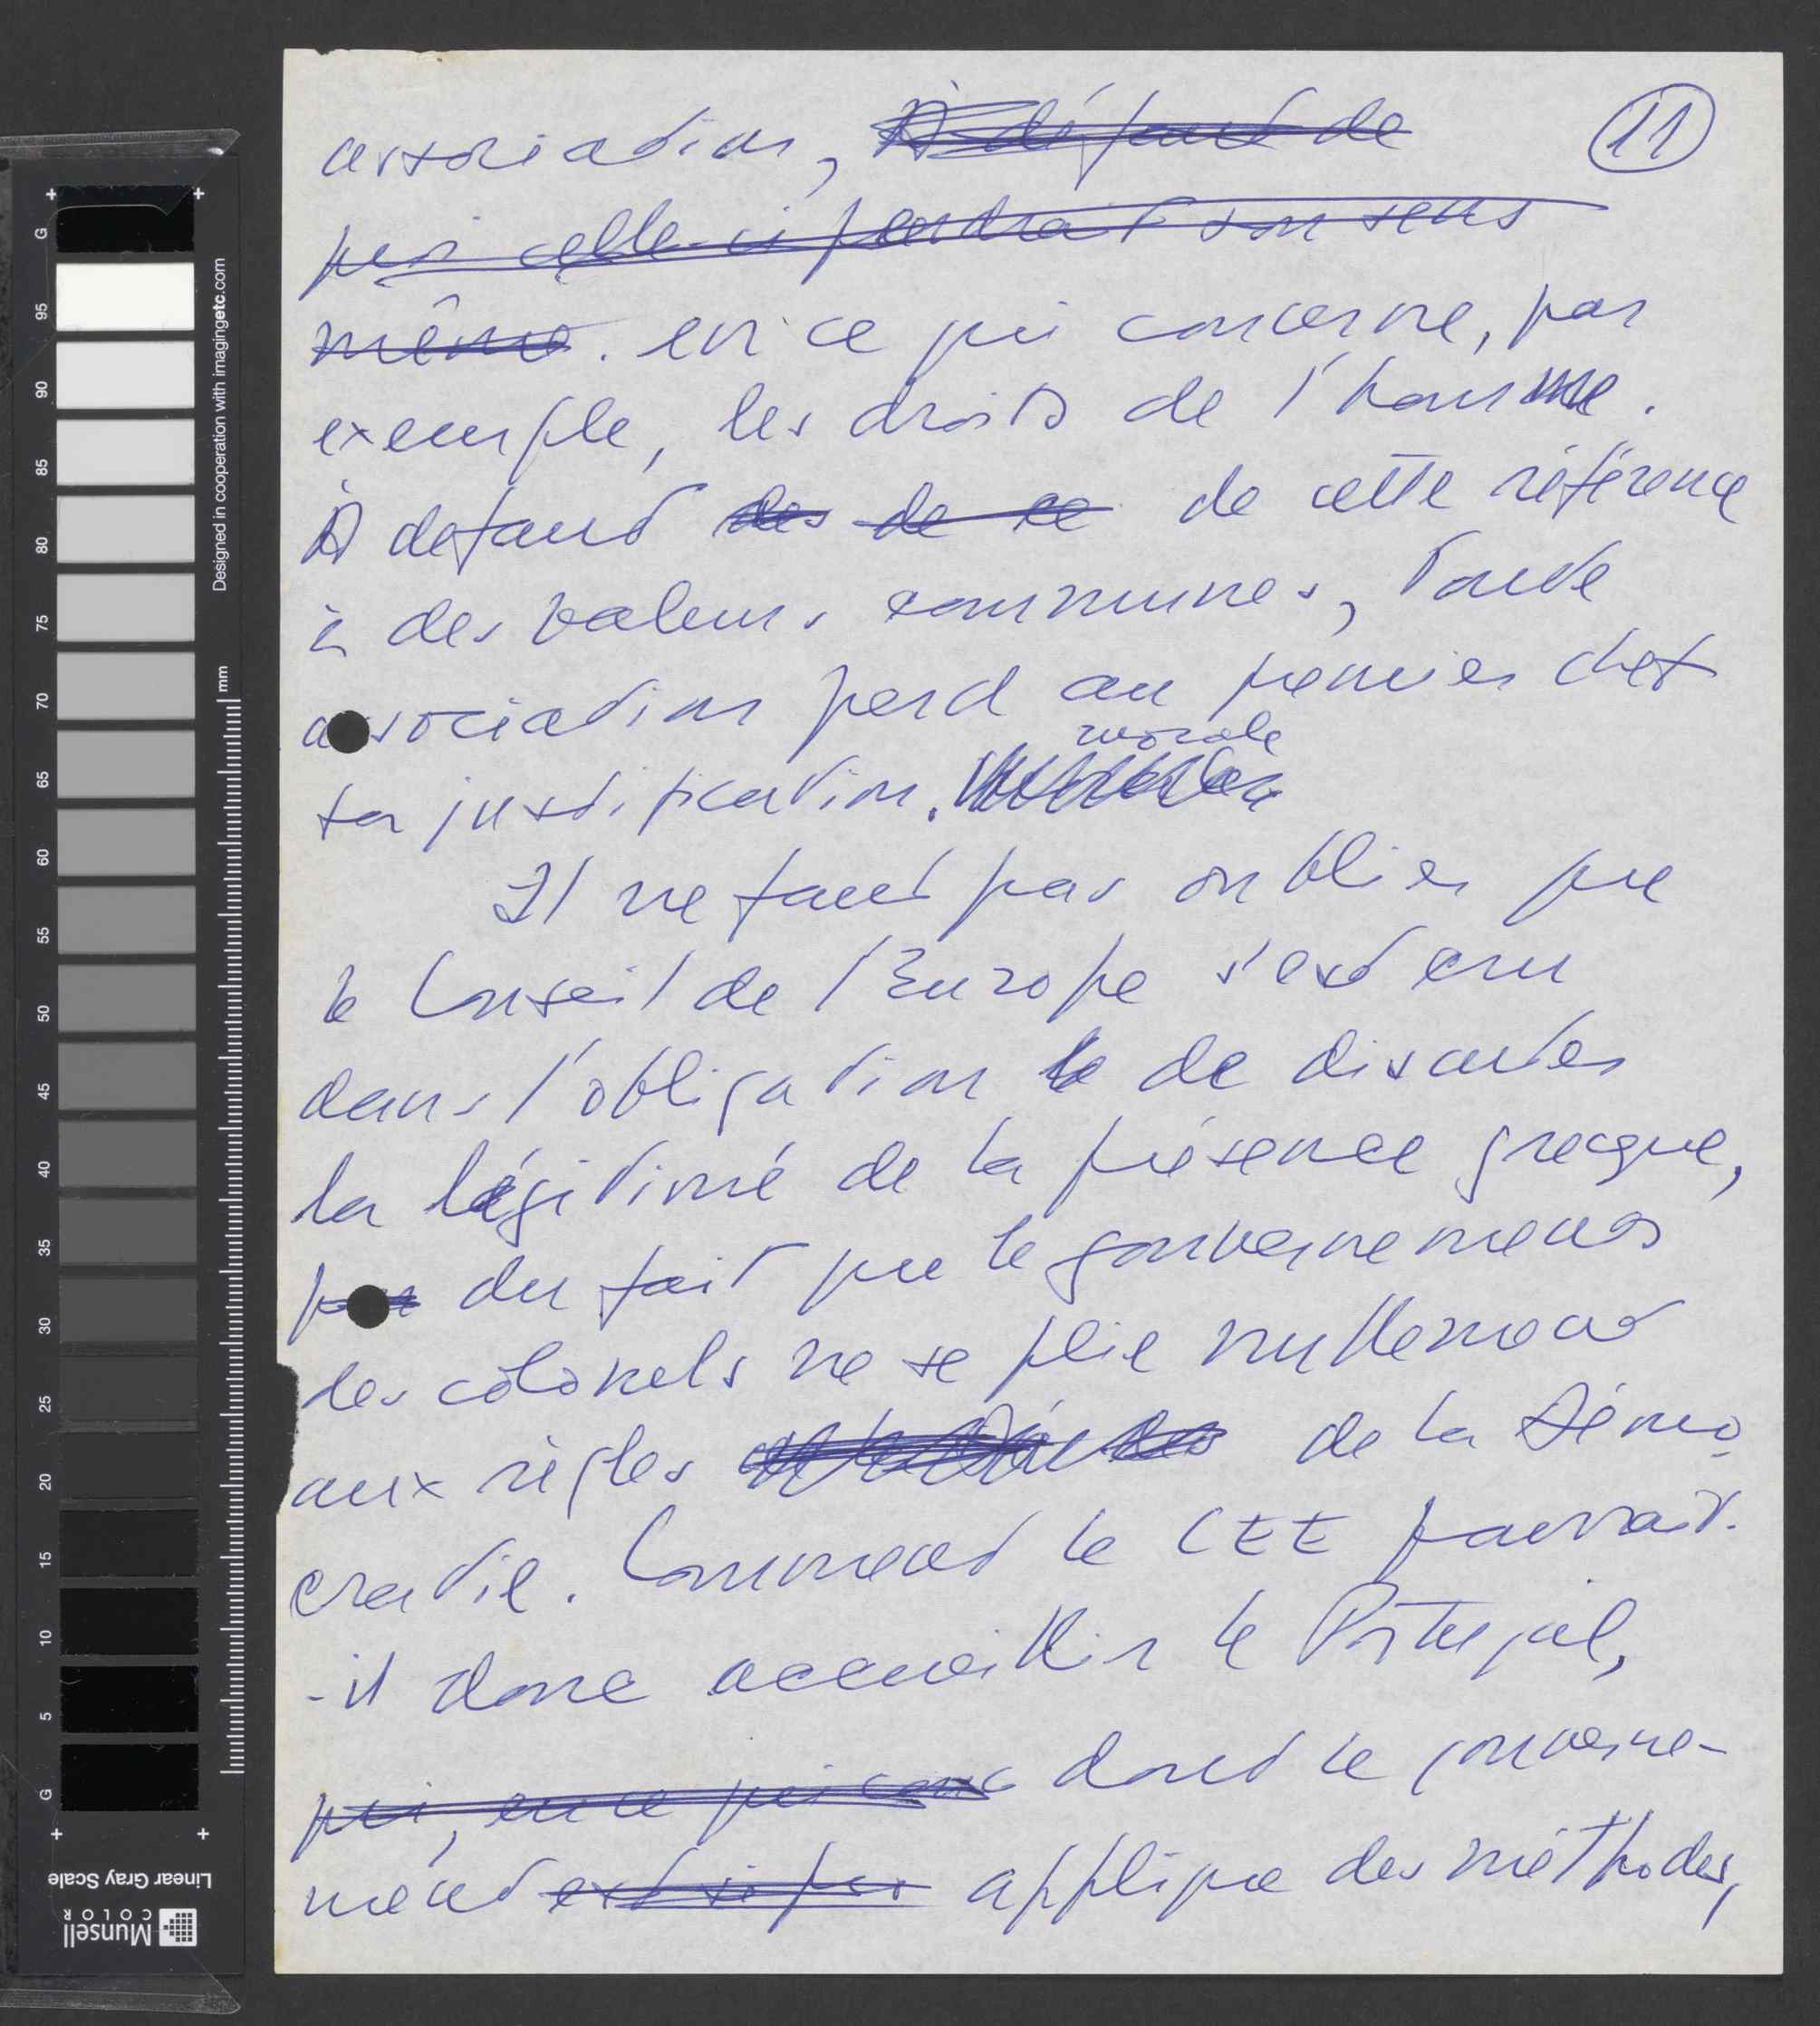 11
association, À défaut de
quoi celle-ci perdrait son sens
même. en ce qui concerne, par
exemple, les droits de l'homme.
À défaut des de ce de cette référence
à des valeurs communes, toute
association perd au premier chef
morale
sa justification.
Il ne faut pas oublier que
le Conseil de l'Europe s'est cru
dans l'obligation de discuter
la légitimé de la présence grecque,
du fait que le gouvernement
des colonels ne se plie nullement
aux règles de la Démo
cratie. Comment le CEE pourrait-
-il donc accueillir le Portugal,
qui, en ce qui conc dont le gouverne-
ment applique des méthodes,
Designed in cooperation with imagingetc.com
mm
G
95
90
85
80
75
70
65
60
55
50
45
40
35
30
25
20
15
10
5
G
Linear Gray Scale
Munsell
COLOR